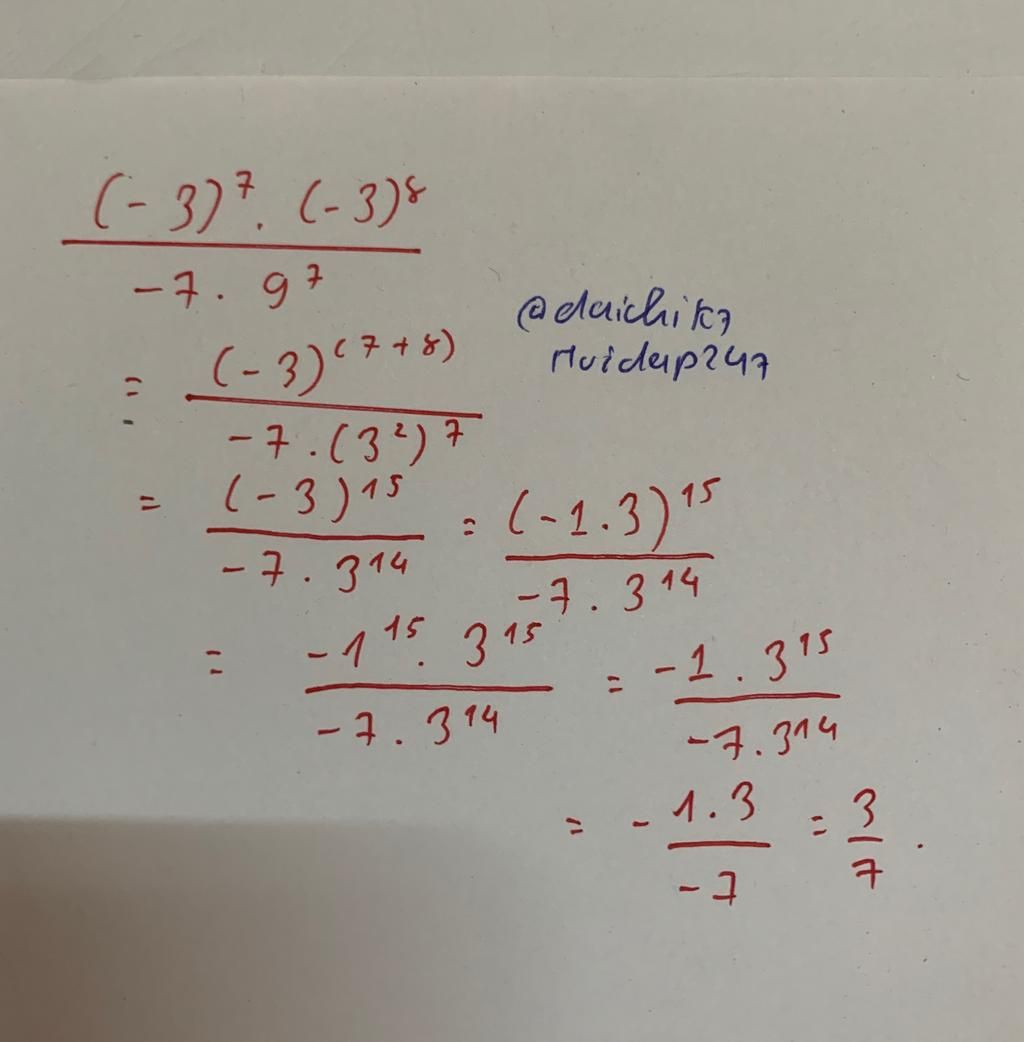 (-3)⁷ . (-3)⁸
-7 . 9⁷
@daichik7
Huidap247
= (-3)⁽⁷⁺⁸⁾
-7 . (3²)⁷
= (-3)¹⁵ = (-1.3)¹⁵
-7 . 3¹⁴ -7 . 3¹⁴
= -1¹⁵ . 3¹⁵ = -1 . 3¹⁵
-7 . 3¹⁴ -7 . 3¹⁴
= - 1.3 = 3 .
-7 7